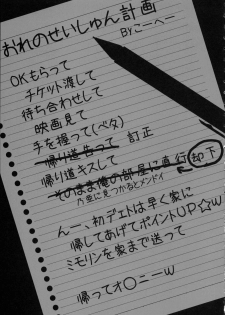 おれのせいしゅん計画
Byこーへー
OKもらって
チケット渡して
待ち合わせして
映画見て
手を握って(ベタ)
帰り道告って 訂正
帰り道キスして
そのまま俺の部屋に直行 却下
乃亜に見つかるとメンドイ
んー、初デェトは早く家に
帰してあげてポイントUP☆w
ミモリンを家まで送って
帰ってオ○ニーw